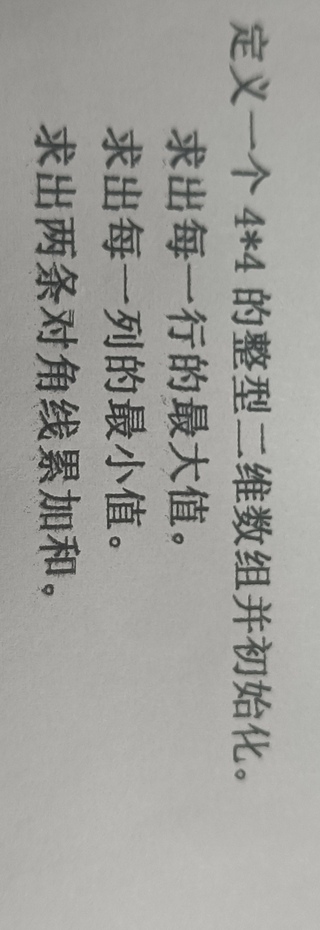 定义一个 4*4 的整型二维数组并初始化。
求出每一行的最大值。
求出每一列的最小值。
求出两条对角线累加和。